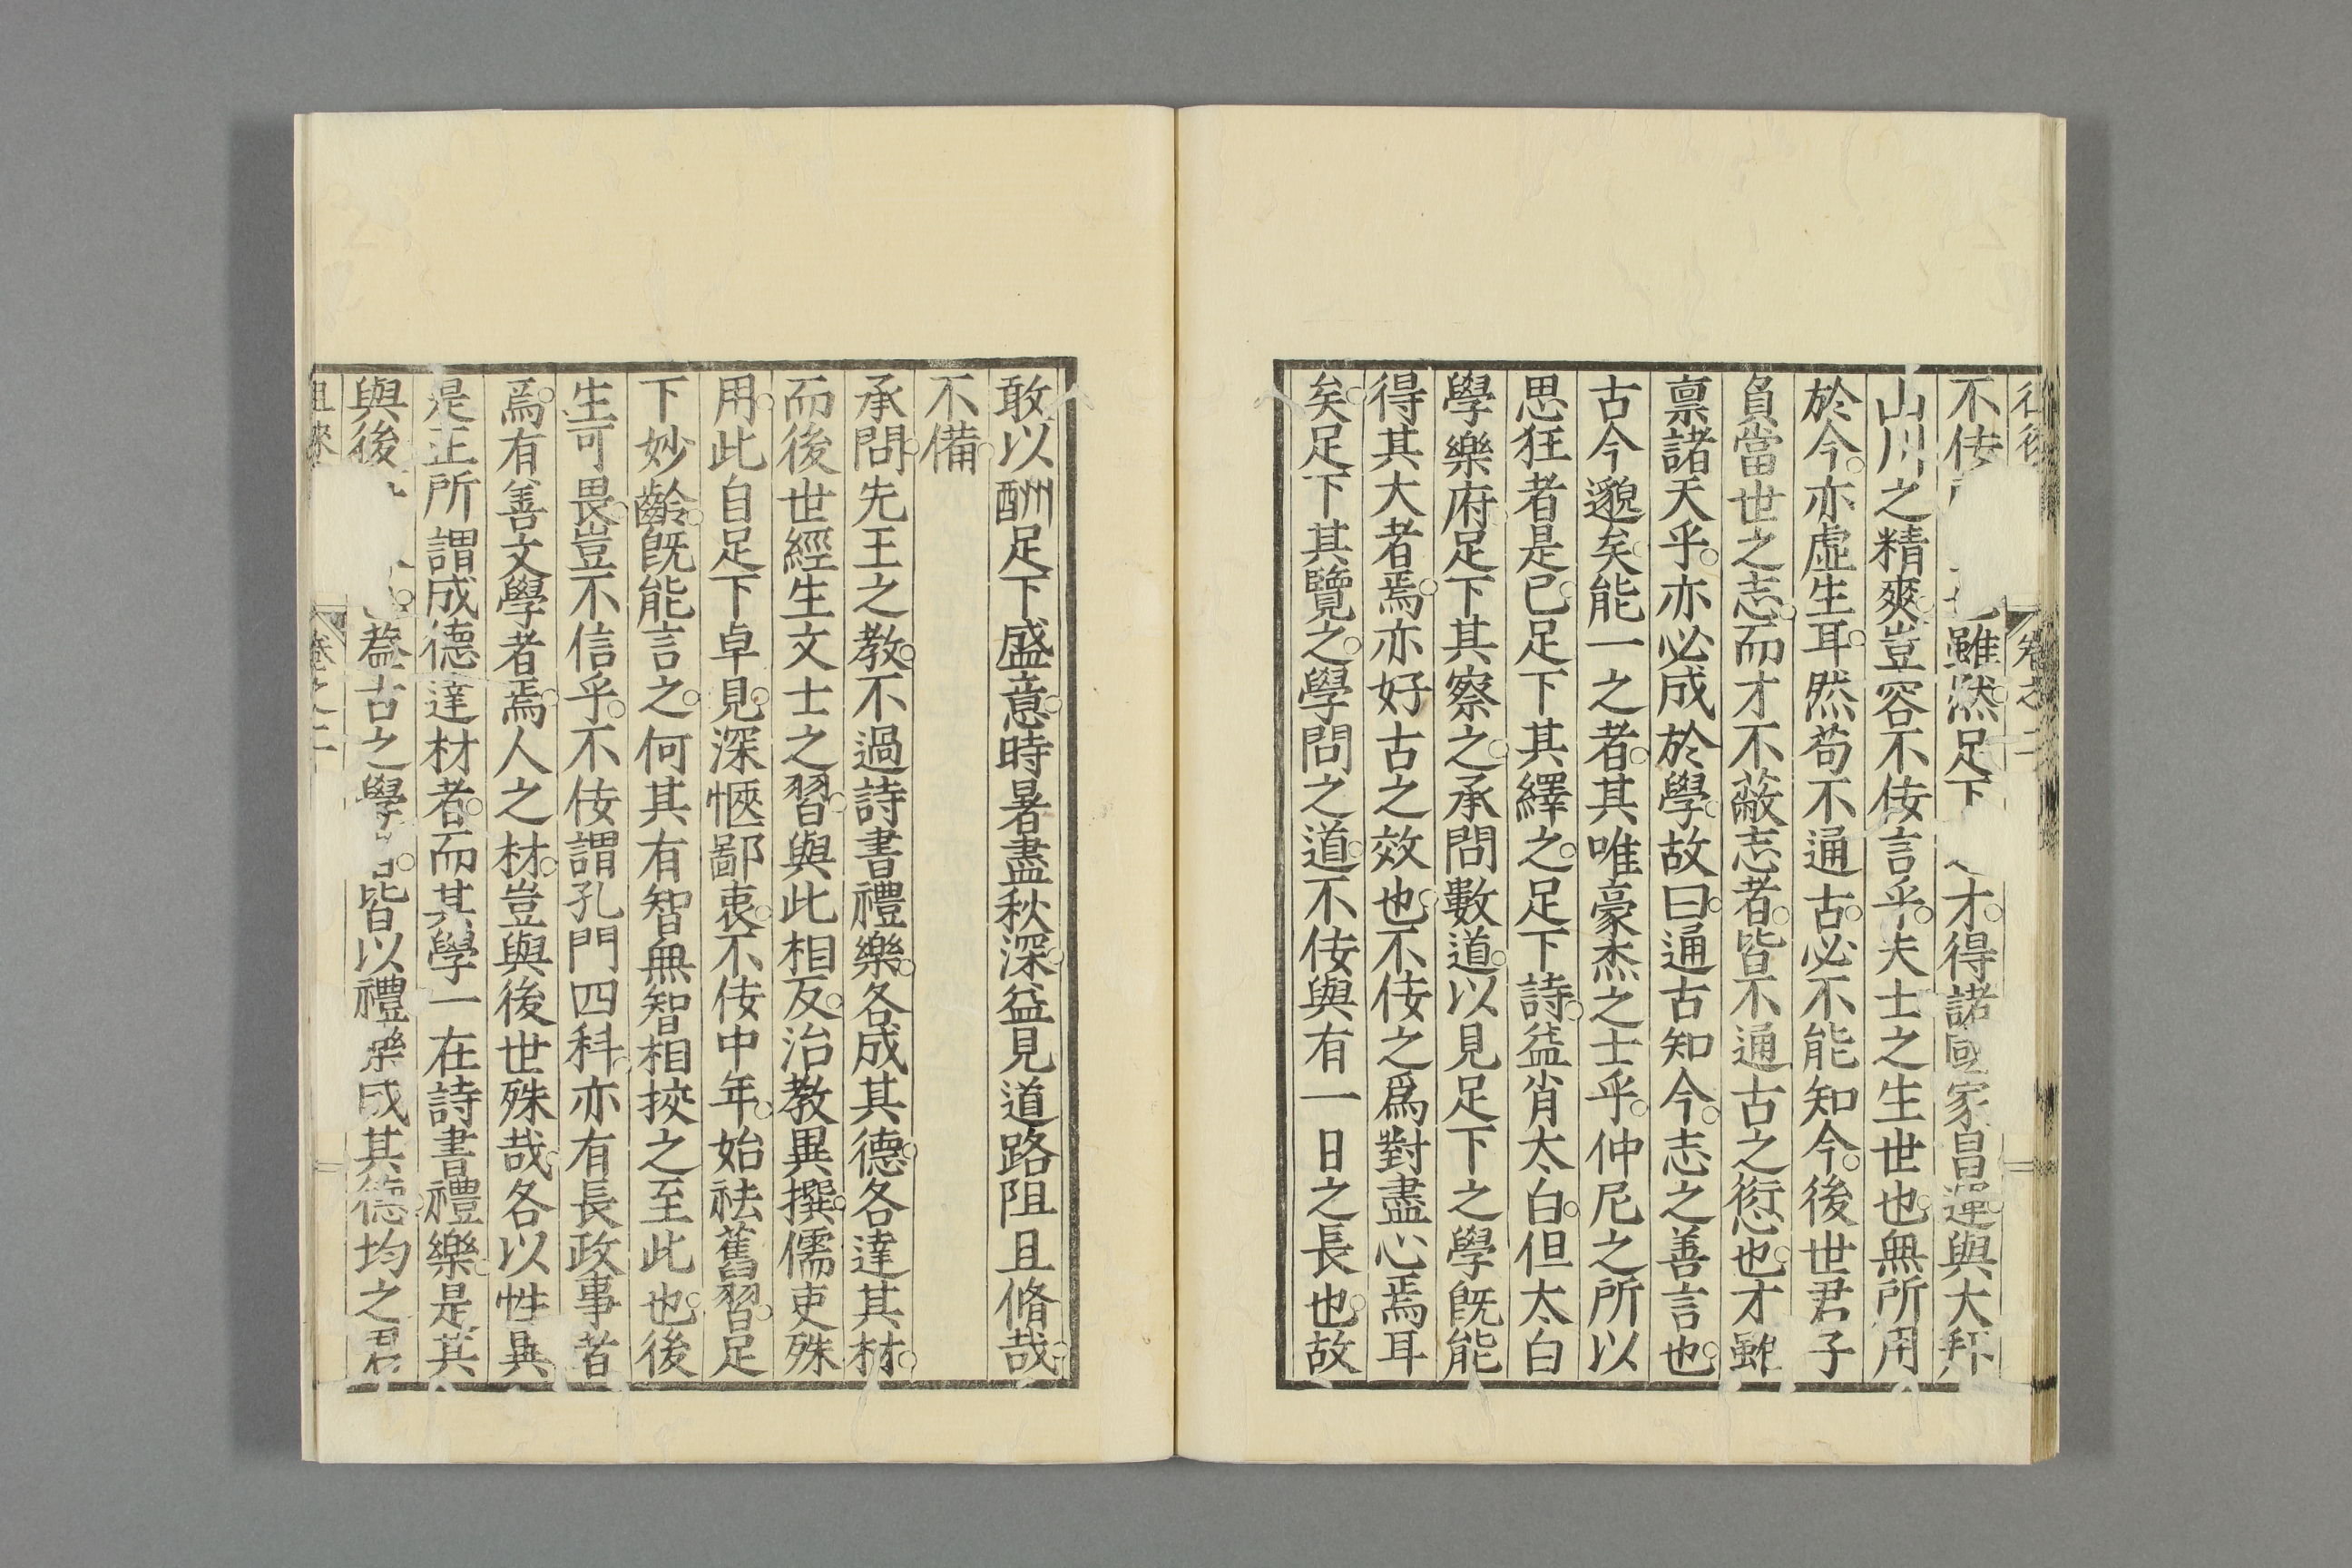 不佞雖然足下才得諸國家昌運與大邦
山川之精爽豈容不佞言乎夫士之生世也無所用
於今亦虛生耳然苟不通古必不能知今後世君子
負當世之志而才不蔽志者皆不通古之愆也才雖
禀諸天乎亦必成於學故曰通古知今志之善言也
古今邈矣能一之者其唯豪杰之士乎仲尼之所以
思狂者是已足下其繹之足下詩益肖太白但太白
學樂府足下其察之承問數道以見足下之學既能
得其大者焉亦好古之效也不佞之爲對盡心焉耳
矣足下其覽之學問之道不佞與有一日之長也故
敢以酬足下盛意時暑盡秋深益見道路阻且脩哉
不備
承問先王之教不過詩書禮樂各成其德各達其材
而後世經生文士之習與此相反治教異撰儒吏殊
用此自足下卓見深愜鄙衷不佞中年始祛舊習足
下妙齡既能言之何其有智無智相挍之至此也後
生可畏豈不信乎不佞謂孔門四科亦有長政事者
焉有善文學者焉人之材豈與後世殊哉各以性異
是正所謂成德達材者而其學一在詩書禮樂是其
與後蓋古之學皆以禮樂成其德均之君
卷之二